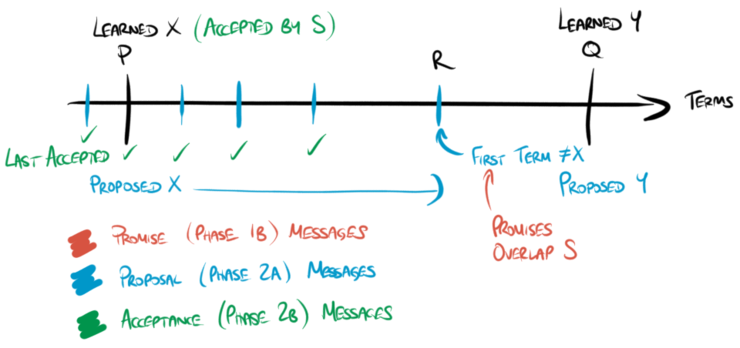 LEARNED X (ACCEPTED BY S)
LEARNED Y
P
R
Q
TERMS
LAST ACCEPTED
FIRST TERM ≠X
PROPOSED X
PROPOSED Y
PROMISES
OVERLAP S
PROMISE (PHASE 1B) MESSAGES
PROPOSAL (PHASE 2A) MESSAGES
ACCEPTANCE (PHASE 2B) MESSAGES